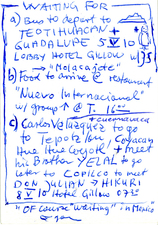 WAITING FOR
a) Bus to depart to
TEOTIHUACAN +
GUADALUPE 5 V 10
LOBBY HOTEL GILLOW w/
"Molacajote"
b) Food to arrive @ restaurant
"Nuevo Internacional"
w/ group @ T.
+ cuernavaca
c) Carlos Vazquez to go
to Tepoztlan Coyoacan
Hue Hue Coyotl + meet
his Brother YELAL to go
later to COPILCO to meet
DON JULIAN → HIKURI
8 V 10 Hotel Gillow
"OF course waiting" in Mexico